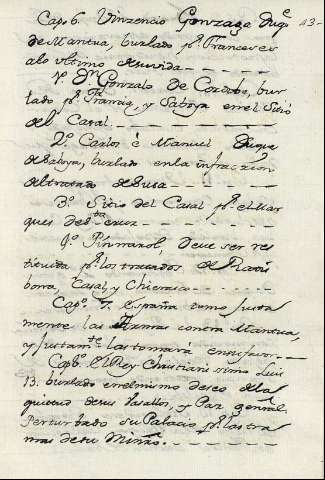 Capº 6. Vinzencio Gonzaga Duqᵉ 43-
de Mantua, burlado pʳ. Franceses
alo ultimo desuvida
1º. Dⁿ. Gonzalo de Cordoba, bur
lado pʳ. Francia, y Saboya en el Sitio
del Casal
2º. Carlos è Manuel Duque
de Saboya, burlado en la infraccion
del tratado de Susa
3º. Sitio del Casal pʳ. el Mar
ques de Sᵗᵃ cruz
4º. Pinnarol, deve ser res
tituida pʳ. los tratados de Ratis
bona, Casal, y Chierasca
Capº. 7. españa tomo justa
mente las Armas contra Mantua,
y justamᵗᵉ las tomarà en su favor
Capº 8. El Rey Christianissimo Luis
13. burlado en el mismo deseo de la
quietud de sus Vasallos, y Paz genral,
Perturbado su Palacio pʳ. las tra
mas de su Minʳᵒ.